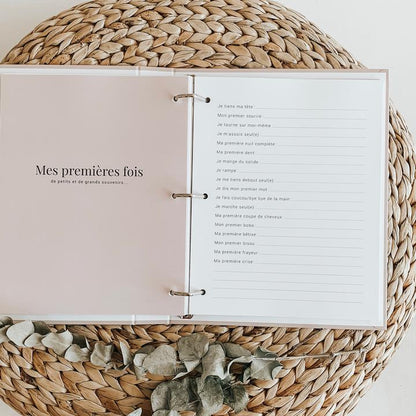 Mes premières fois
de petits et de grands souvenirs...
Je tiens ma tête
Mon premier sourire
Je tourne sur moi-même
Je m'assois seul(e)
Ma première nuit complète
Ma première dent
Je mange du solide
Je rampe
Je me tiens debout seul(e)
Je dis mon premier mot
Je fais coucou/bye bye de la main
Je marche seul(e)
Ma première coupe de cheveux
Mon premier bobo
Ma première bêtise
Mon premier bisou
Ma première frayeur
Ma première crise